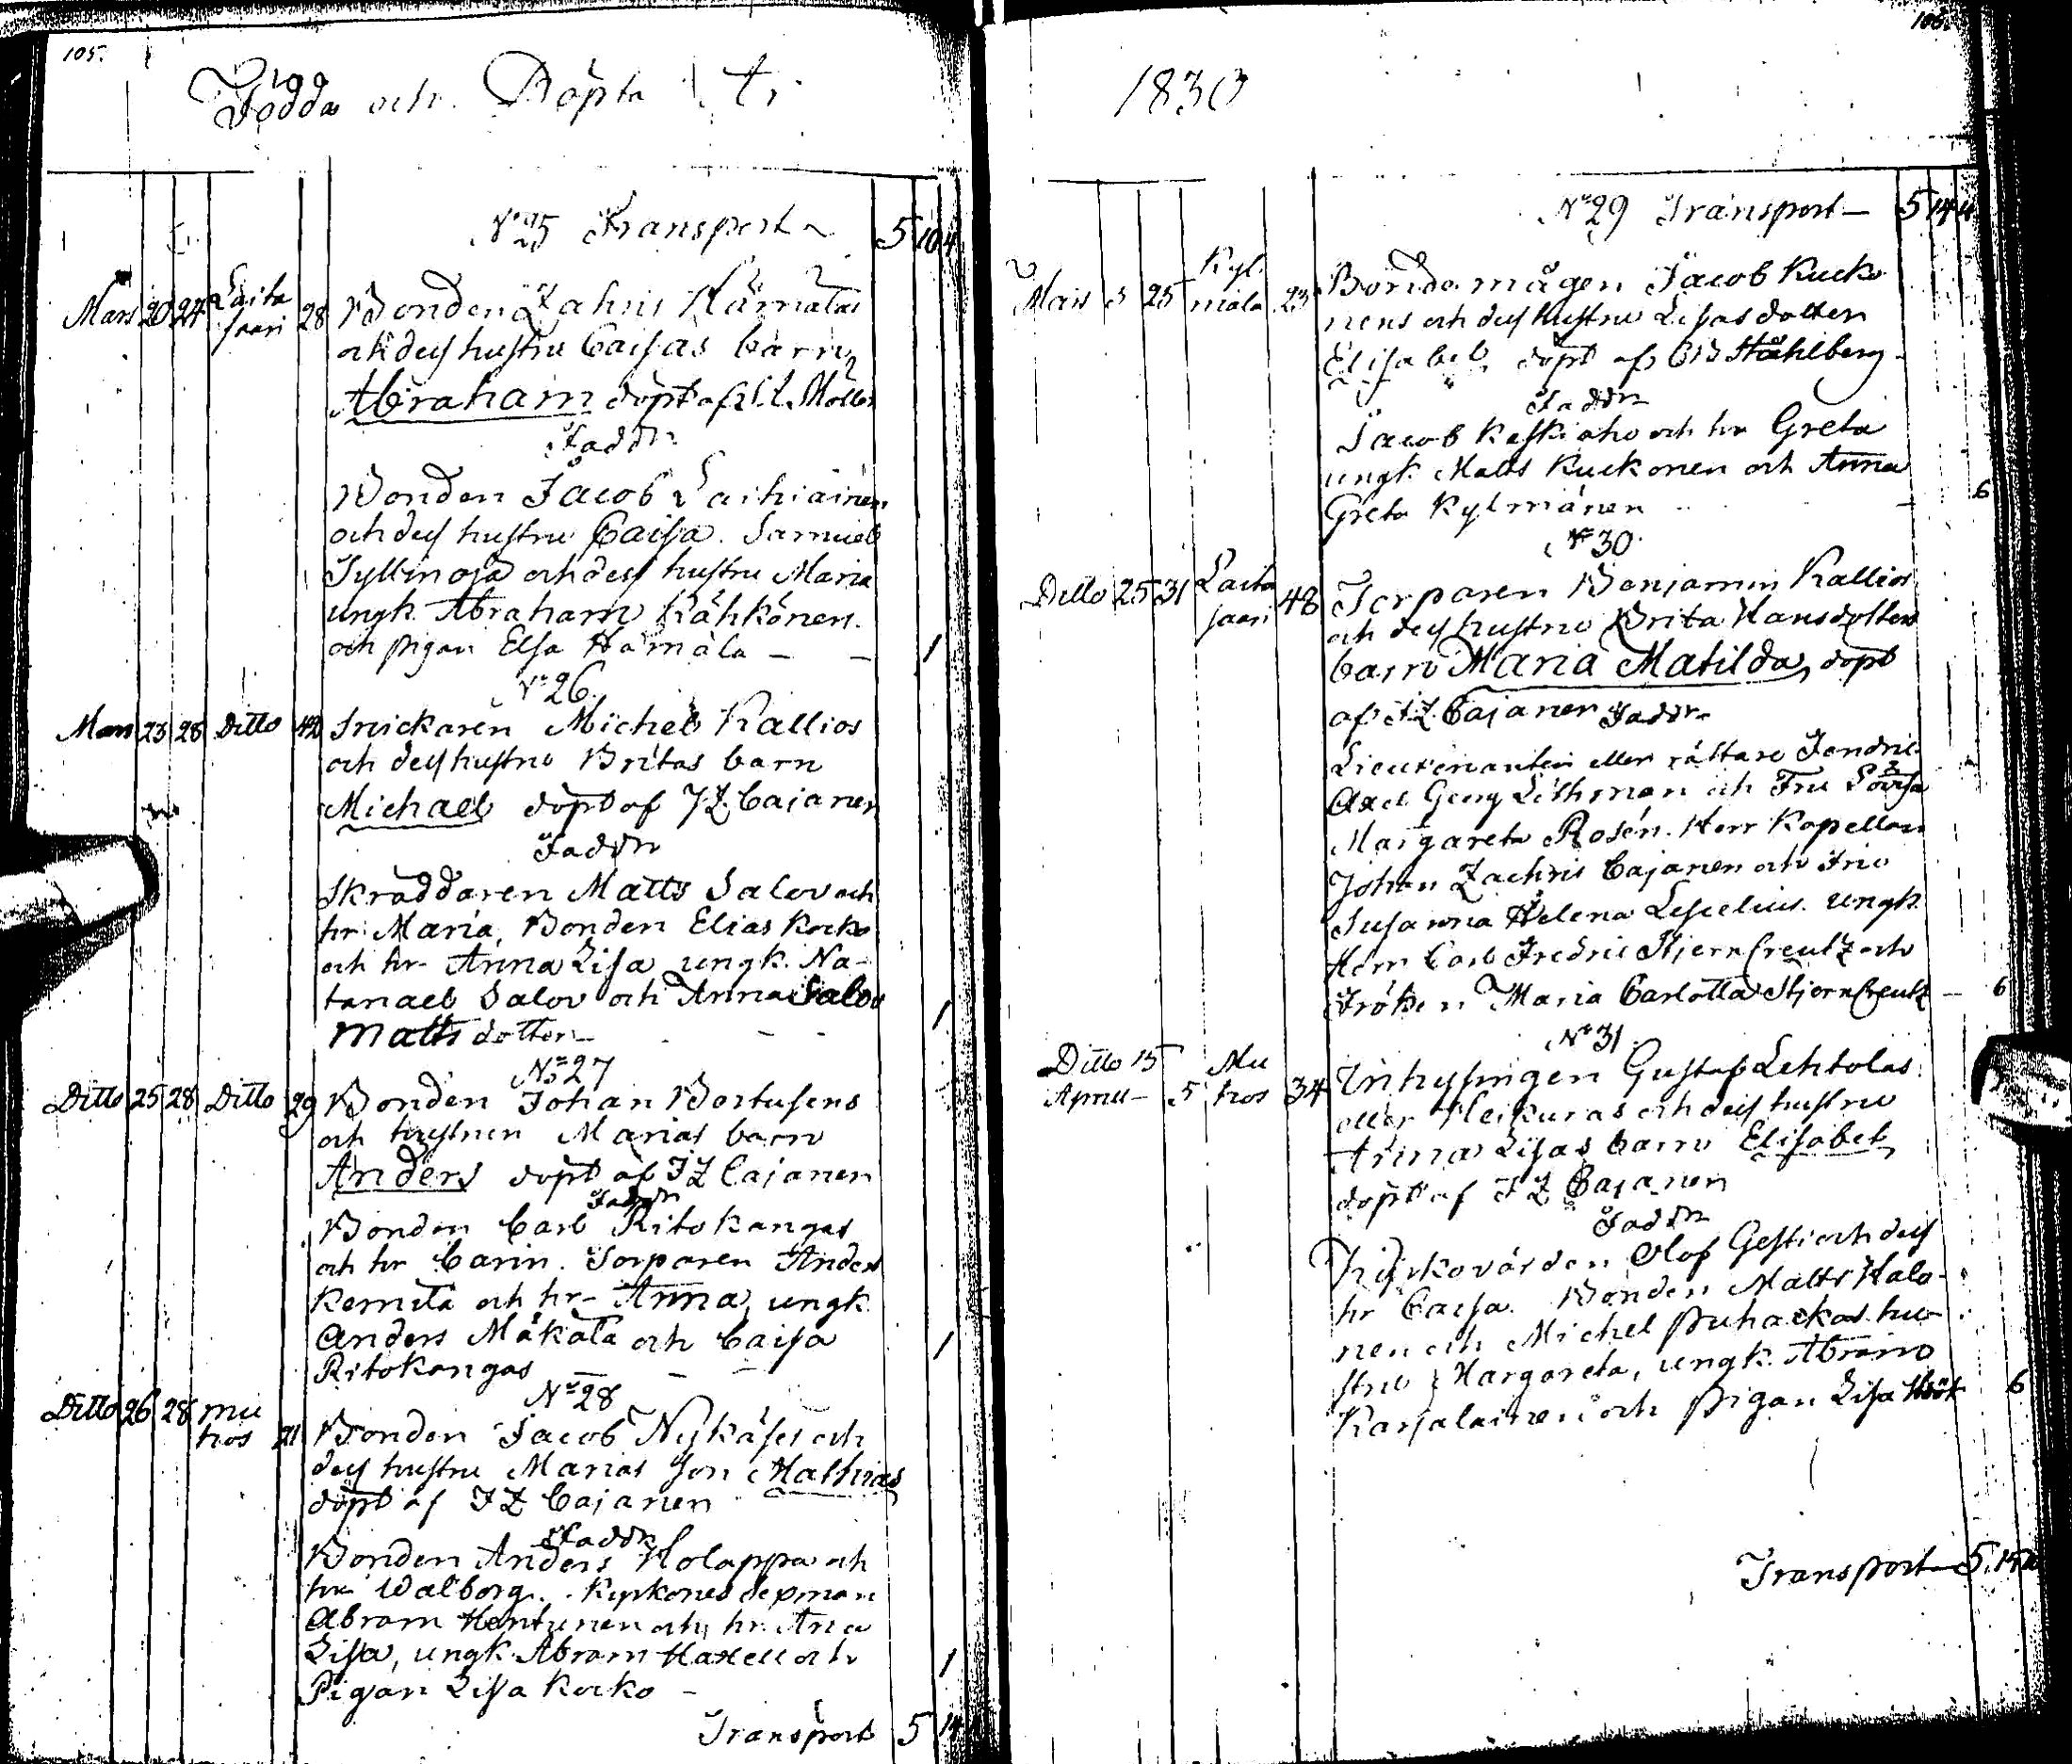 105.
Födda och Döpta År
No 25 Transport 5 10 4
Mars 20 24 Laita saari 28 Bonden Zahris Hämälas
och dess hustru Caisas barn
Abraham döpt af
Faddr
Bonden Jacob Laihiainen
och dess hustru Caisa. Samuel
Tyllinoja och dess hustru Maria
ungk. Abraham Kähkönen
och pigan Elsa Hämälä — — 1
No 26.
Mars 23 28 Ditto 42 Snickaren Michel Kallios
och dess hustru Britas barn
Michael döpt af J Z Cajanen
Faddr
Skräddaren Matts Salov och
hr Maria, Bonden Elias Korko
och hr Anna Lisa ungk. Na-
tanael Salov och Anna Salov
Matts dotter — 1
No 27
Ditto 25 28 Ditto 29 Bonden Johan Bertusens
och hustrun Marias barn
Anders döpt af J Z Cajanen
Faddr
Bonden Carl Ritokangas
och hr Carin. Torparen Anders
Kemilä och hr Anna, ungk
Anders Mäkälä och Caisa
Ritokangas — — 1
No 28
Ditto 26 28 Mu hos 21 Bonden Jacob Nykäses och
dess hustru Marias son Mathias
döpt af J Z Cajanen
Faddr
Bonden Anders Holappa och
hr Walborg. Kyrkones
Abram Hentunen och hr Ana
Lisa, ungk Abram Haxell och
Pigan Lisa Korko — 1
Transport 5 14
105.
1830
No 29 Transport — 5 14 4
Mars 5 25 Kyl mälä 23 Bondemågen Jacob Kucko
nens och dess hustru Lisas dotter
Elisabet döpt af Ståhlberg
Faddr
Jacob Keskiaho och hr Greta
ungk. Matts Kuckonen och Anna
Greta Kylmänen — 6
No 30.
Ditto 25 31 Laita saari 48 Torparen Benjamin Kallios
och dess hustru Brita Hansdotters
barn Maria Matilda, döpt
af J Z Cajanen Faddr
Lieutenanten eller rättare Fendric
Axel Georg Lithman och Fru Lovisa
Margareta Rosén. Herr Kapellan
Johan Zachris Cajanen och Fru
Susanna Helena Lescelius. ungk.
Herr Carl Fredric Stjerncreutz och
Fröken Maria Carlotta Stjerncreutz — 6
No 31.
Ditto 15 April — 5 Mu hos 34 Inhysingen Gustaf Lehtolas
eller Heikuras och dess hustru
Anna Lisas barn Elisabet
döpt af J Z Cajanen
Faddr
Kyrkovärden Olof Gesti och dess
hr Caisa. Bonden Matts Halo-
nen och Michel Puhackas hu-
stru Margareta, ungk. Abram
Karjalainen och pigan Lisa Höök 6
Transport 5.15